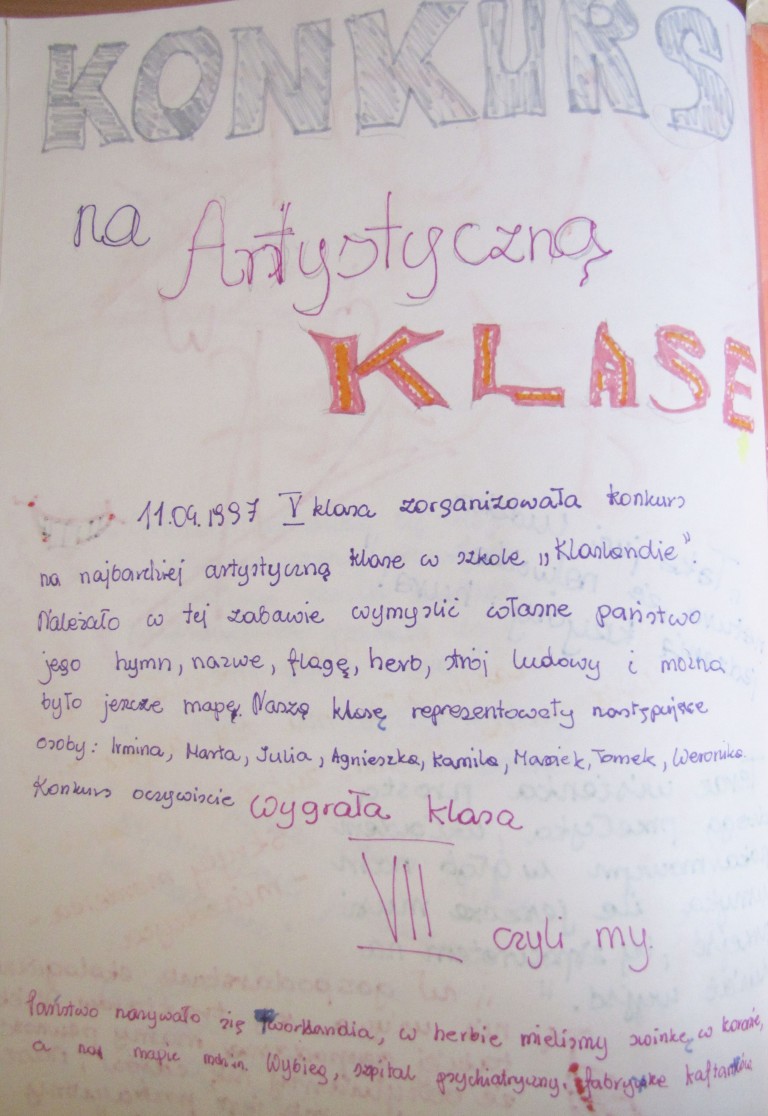 KONKURS
na Artystyczną
KLASE
11.04.1997 V klasa zorganizowała konkurs
na najbardziej artystyczną klase w szkole „Klaslandie”.
Należało w tej zabawie wymyslić własne państwo
jego hymn, nazwe, flagę, herb, strój ludowy i można
było jeszcze mapę. Naszą klasę reprezentowały następujące
osoby: Irmina, Marta, Julia, Agnieszka, Kamila, Maciek, Tomek, Weronika.
Konkurs oczywiscie wygrała klasa
VII czyli my.
Państwo nazywało się Tworklandia, w herbie mielismy swinkę w koronie,
a na mapie m.in. Wybieg, szpital psychiatryczny, fabrykę kaftanów